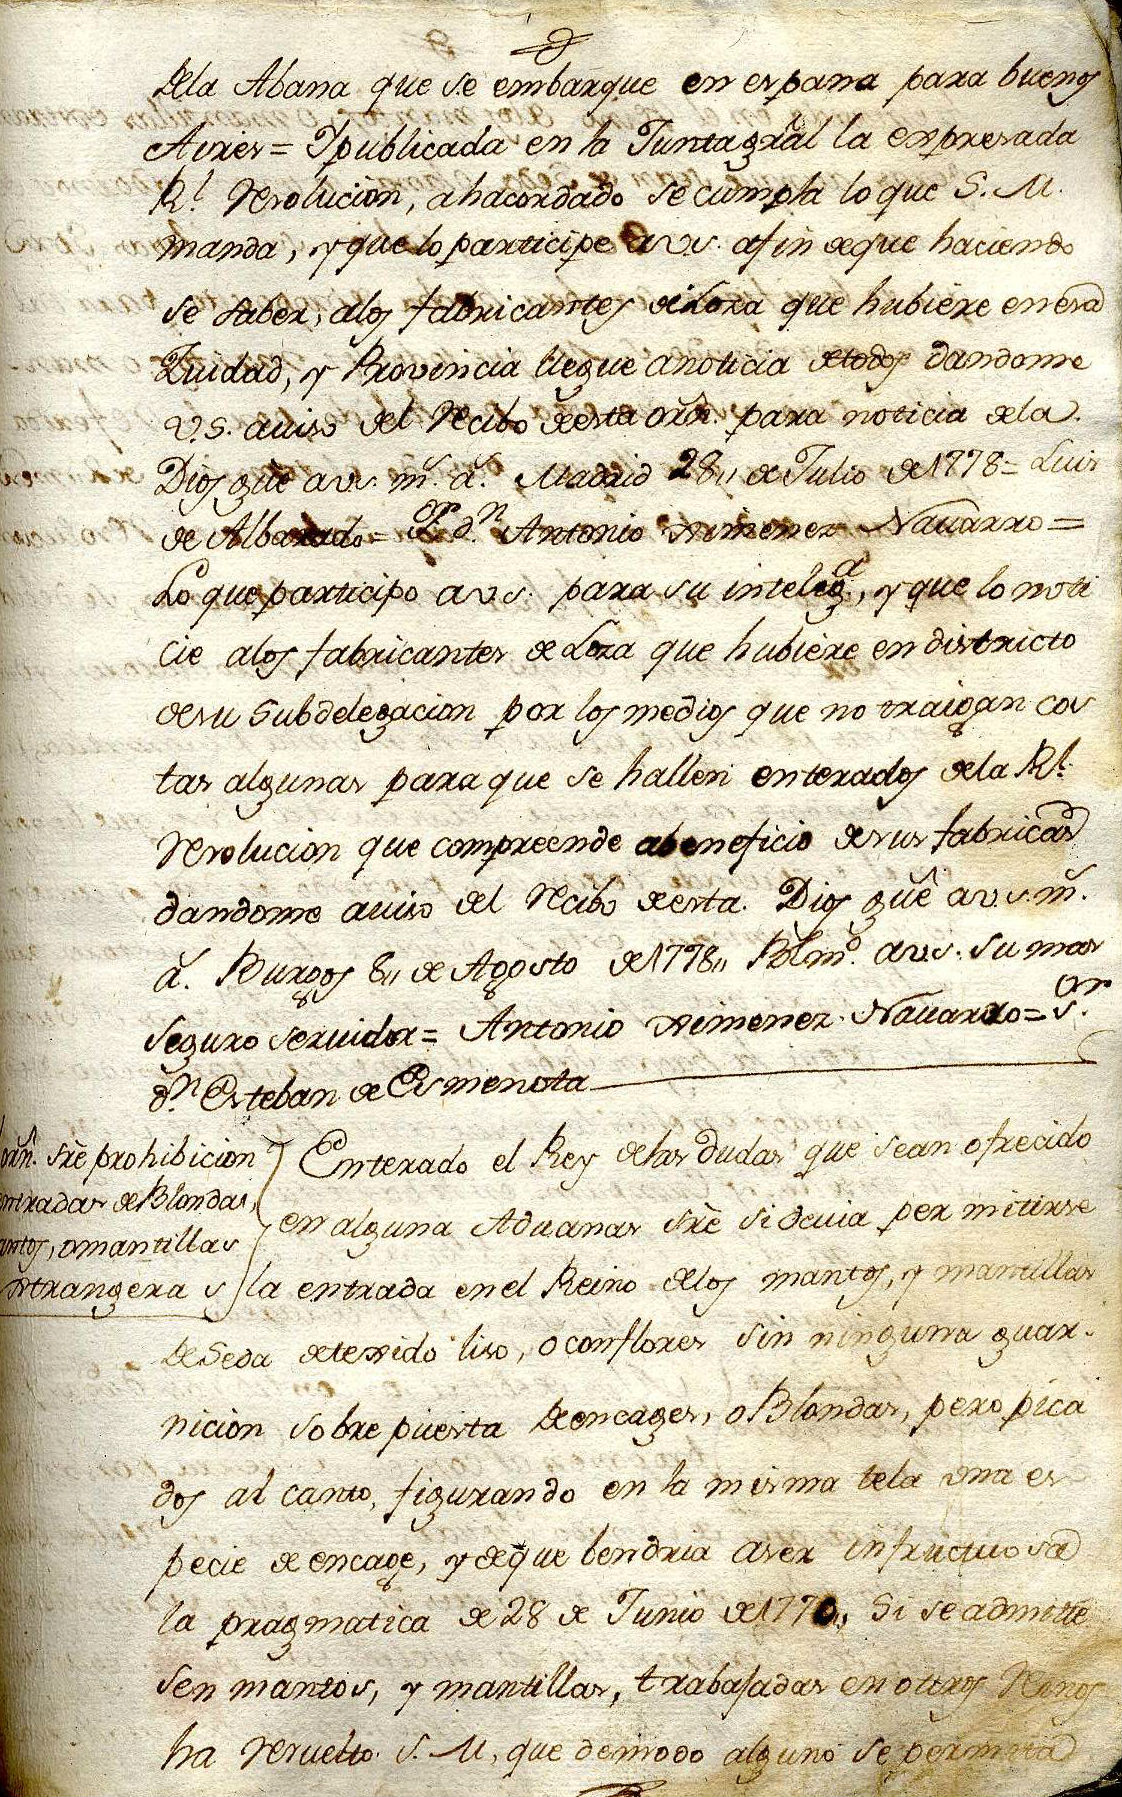 dela Abana que se embarque en espana para buenos
Aires = Ypublicada en la Junta grâl la expresada
Rl. resolucion, ahacordado se cumpla lo que S. M.
manda, y que lo participe a v s. afin deque haciendo
se saber, alos fabricantes de Loza que hubiere en esa
Ziudad, y Provincia llegue anoticia detodos dandome
V. S. aviso del recibo desta orñ. para noticia dela.
Dios guê a v s. ms. as. Madrid 28,, de Julio de 1778 = Luis
de Albarado = Sor. dn. Antonio Ximenez Navarro =
Lo que participo a v s. para su intelega, y que lo noti
cie alos fabricantes de Loza que hubiere en districto
desu Subdelegacion por los medios que no traigan cos
tas algunas para que se hallen enterados dela Rl.
resolucion que compreende abeneficio desus fabricas
dandome aviso del recibo desta. Dios guê a v. s. ms.
as. Burgos 8,, de Agosto de 1778,, Blmo. a v s. su mas
seguro servidor = Antonio Ximenez Navarro = Sor.
dn. Esteban de Esmenota
orñ. srê prohibicion
entradas de Blondas,
mantos, o mantillas
extrangeras
Enterado el Rey delas dudas que sean ofrecido
en alguna Aduanas srê si devia permitirse
la entrada en el Reino delos mantos, y mantillas
de Seda detexido liso, o con flores sin ninguna guar-
nicion sobre puesta de encages, o Blondas, pero pica
dos al canto, figurando en la misma tela una es
pecie de encage, y deque bendria aser infructuosa
la pragmatica de 28 de Junio de 1770,, Si se admitie
sen mantos, y mantillas, trabajadas en otros Reinos
ha resuelto S. M, que demodo alguno se permita